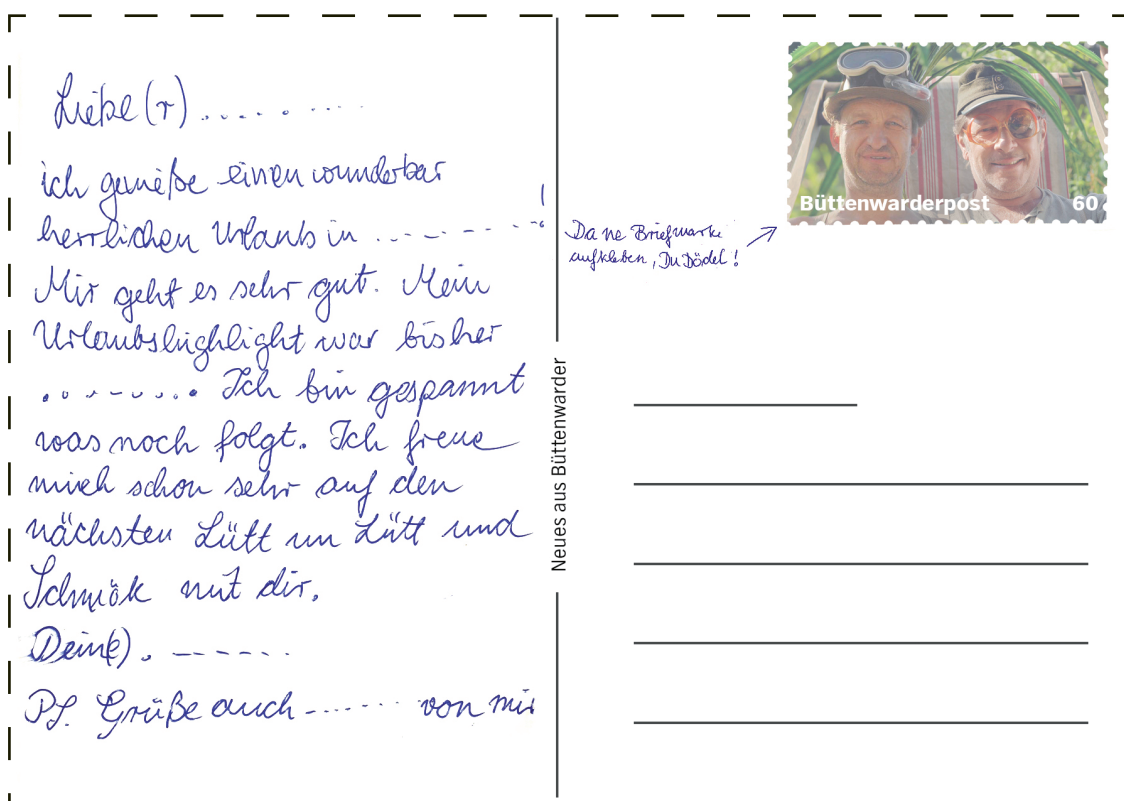 Liebe(r) .........
ich genieße einen wunderbar
herrlichen Urlaub in ......... !
Mir geht es sehr gut. Mein
Urlaubshighlight war bisher
......... Ich bin gespannt
was noch folgt. Ich freue
mich schon sehr auf den
nächsten Lütt un Lütt und
Schmök mit dir.
Dein(e) .------
PS. Grüße auch ......... von mir
Neues aus Büttenwarder
Büttenwarderpost 60
Da ne Briefmarke
aufkleben, Du Dödel!